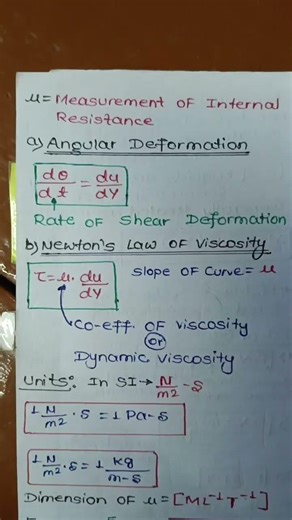 μ = Measurement of Internal
Resistance
a) Angular Deformation
dθ/dt = du/dy
Rate of Shear Deformation
b) Newton's Law of Viscosity
τ = μ. du/dy Slope of curve = μ
Co-eff. of viscosity
or
Dynamic viscosity
Units: In SI → N/m² - s
1 N/m² · s = 1 Pa-s
1 N/m² · s = 1 kg/m-s
Dimension of μ = [ML⁻¹T⁻¹]